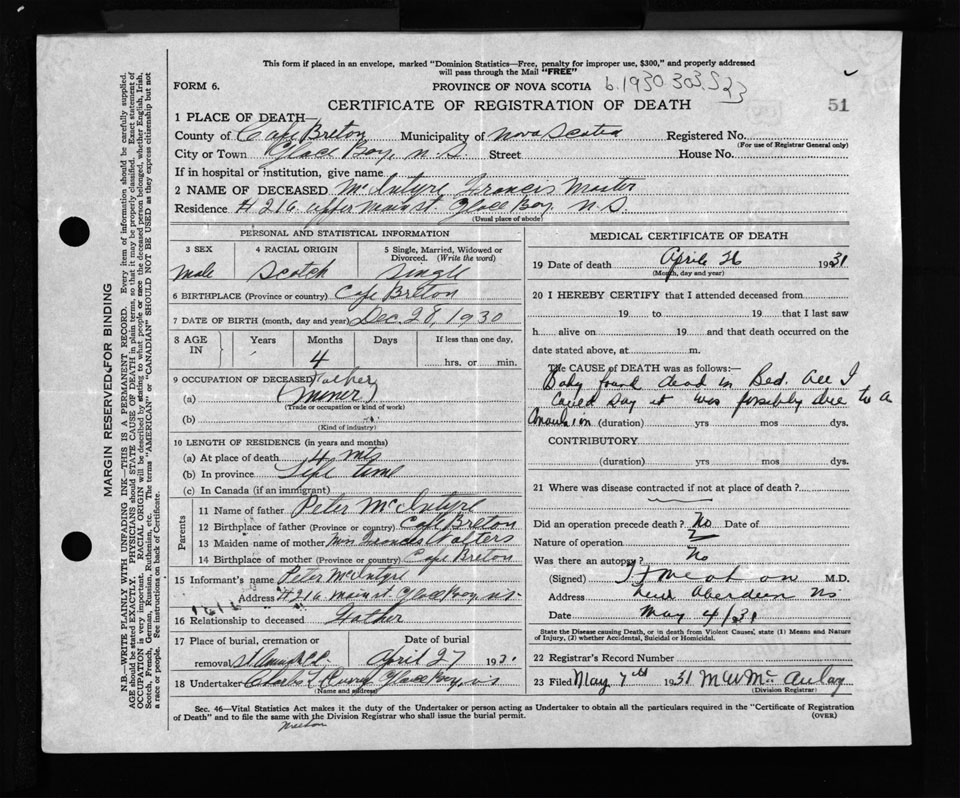 This form if placed in an envelope, marked "Dominion Statistics—Free, penalty for improper use, $300," and properly addressed
will pass through the Mail "FREE"
FORM 6.
PROVINCE OF NOVA SCOTIA b.1930 303523
CERTIFICATE OF REGISTRATION OF DEATH
51
1 PLACE OF DEATH—
County of Cape Breton Municipality of Nova Scotia Registered No.
(For use of Registrar General only)
City or Town Glace Bay, N.S. Street House No.
If in hospital or institution, give name
2 NAME OF DECEASED McIntyre Francis Master
Residence # 216 upper Main st. Glace Bay N.S
(Usual place of abode)
PERSONAL AND STATISTICAL INFORMATION
3 SEX 4 RACIAL ORIGIN 5 Single, Married, Widowed or Divorced. (Write the word)
male Scotch Single
6 BIRTHPLACE (Province or country) Cape Breton
7 DATE OF BIRTH (month, day and year) Dec. 28, 1930
8 AGE IN Years Months Days If less than one day,
4 hrs. or min.
9 OCCUPATION OF DECEASED Father
(a) (Miner)
(Trade or occupation or kind of work)
(b)
(Kind of industry)
10 LENGTH OF RESIDENCE (in years and months)
(a) At place of death 4 mts
(b) In province Life time
(c) In Canada (if an immigrant)
Parents
11 Name of father Peter McIntyre
12 Birthplace of father (Province or country) Cape Breton
13 Maiden name of mother Francis Walters
14 Birthplace of mother (Province or country) Cape Breton
15 Informant's name Peter McIntyre
Address #216 main st. Glace Bay, N.S.
16 Relationship to deceased Father
17 Place of burial, cremation or removal Date of burial
St Anns R.C. April 27 19
18 Undertaker Charles Curry Glace Bay, N.S
(Name and address)
MEDICAL CERTIFICATE OF DEATH
19 Date of death April 26 1931
(Month, day and year)
20 I HEREBY CERTIFY that I attended deceased from
19 to 19 that I last saw
h alive on 19 and that death occurred on the
date stated above, at m.
The CAUSE OF DEATH was as follows:—
Baby found dead in Bed. All I
could say it was possibly due to a
Convulsion (duration) yrs mos dys.
CONTRIBUTORY
(duration) yrs mos dys.
21 Where was disease contracted if not at place of death?
Did an operation precede death? No Date of
Nature of operation
Was there an autopsy? No
(Signed) M.D.
Address New Aberdeen NS
Date May 4/31
State the Disease causing Death, or in death from Violent Causes, state (1) Means and Nature
of Injury, (2) whether Accidental, Suicidal or Homicidal.
22 Registrar's Record Number
23 Filed May 7th 1931 M W McAulay
(Division Registrar)
Sec. 46—Vital Statistics Act makes it the duty of the Undertaker or person acting as Undertaker to obtain all the particulars required in the "Certificate of Registration
of Death" and to file the same with the Division Registrar who shall issue the burial permit.
(OVER)
MARGIN RESERVED FOR BINDING
N.B.—WRITE PLAINLY WITH UNFADING INK—THIS IS A PERMANENT RECORD. Every item of information should be carefully supplied.
AGE should be stated EXACTLY. PHYSICIANS should STATE CAUSE OF DEATH in plain terms, so that it may be properly classified. Exact statement of
OCCUPATION is very important. RACIAL ORIGIN will be described by stating to what people or race the deceased person belonged, whether English, Irish,
Scotch, French, German, Russian, Ruthenian, etc. The terms "AMERICAN" or "CANADIAN" SHOULD NOT BE USED as they express citizenship but not
a race or people. See instructions on back of Certificate.